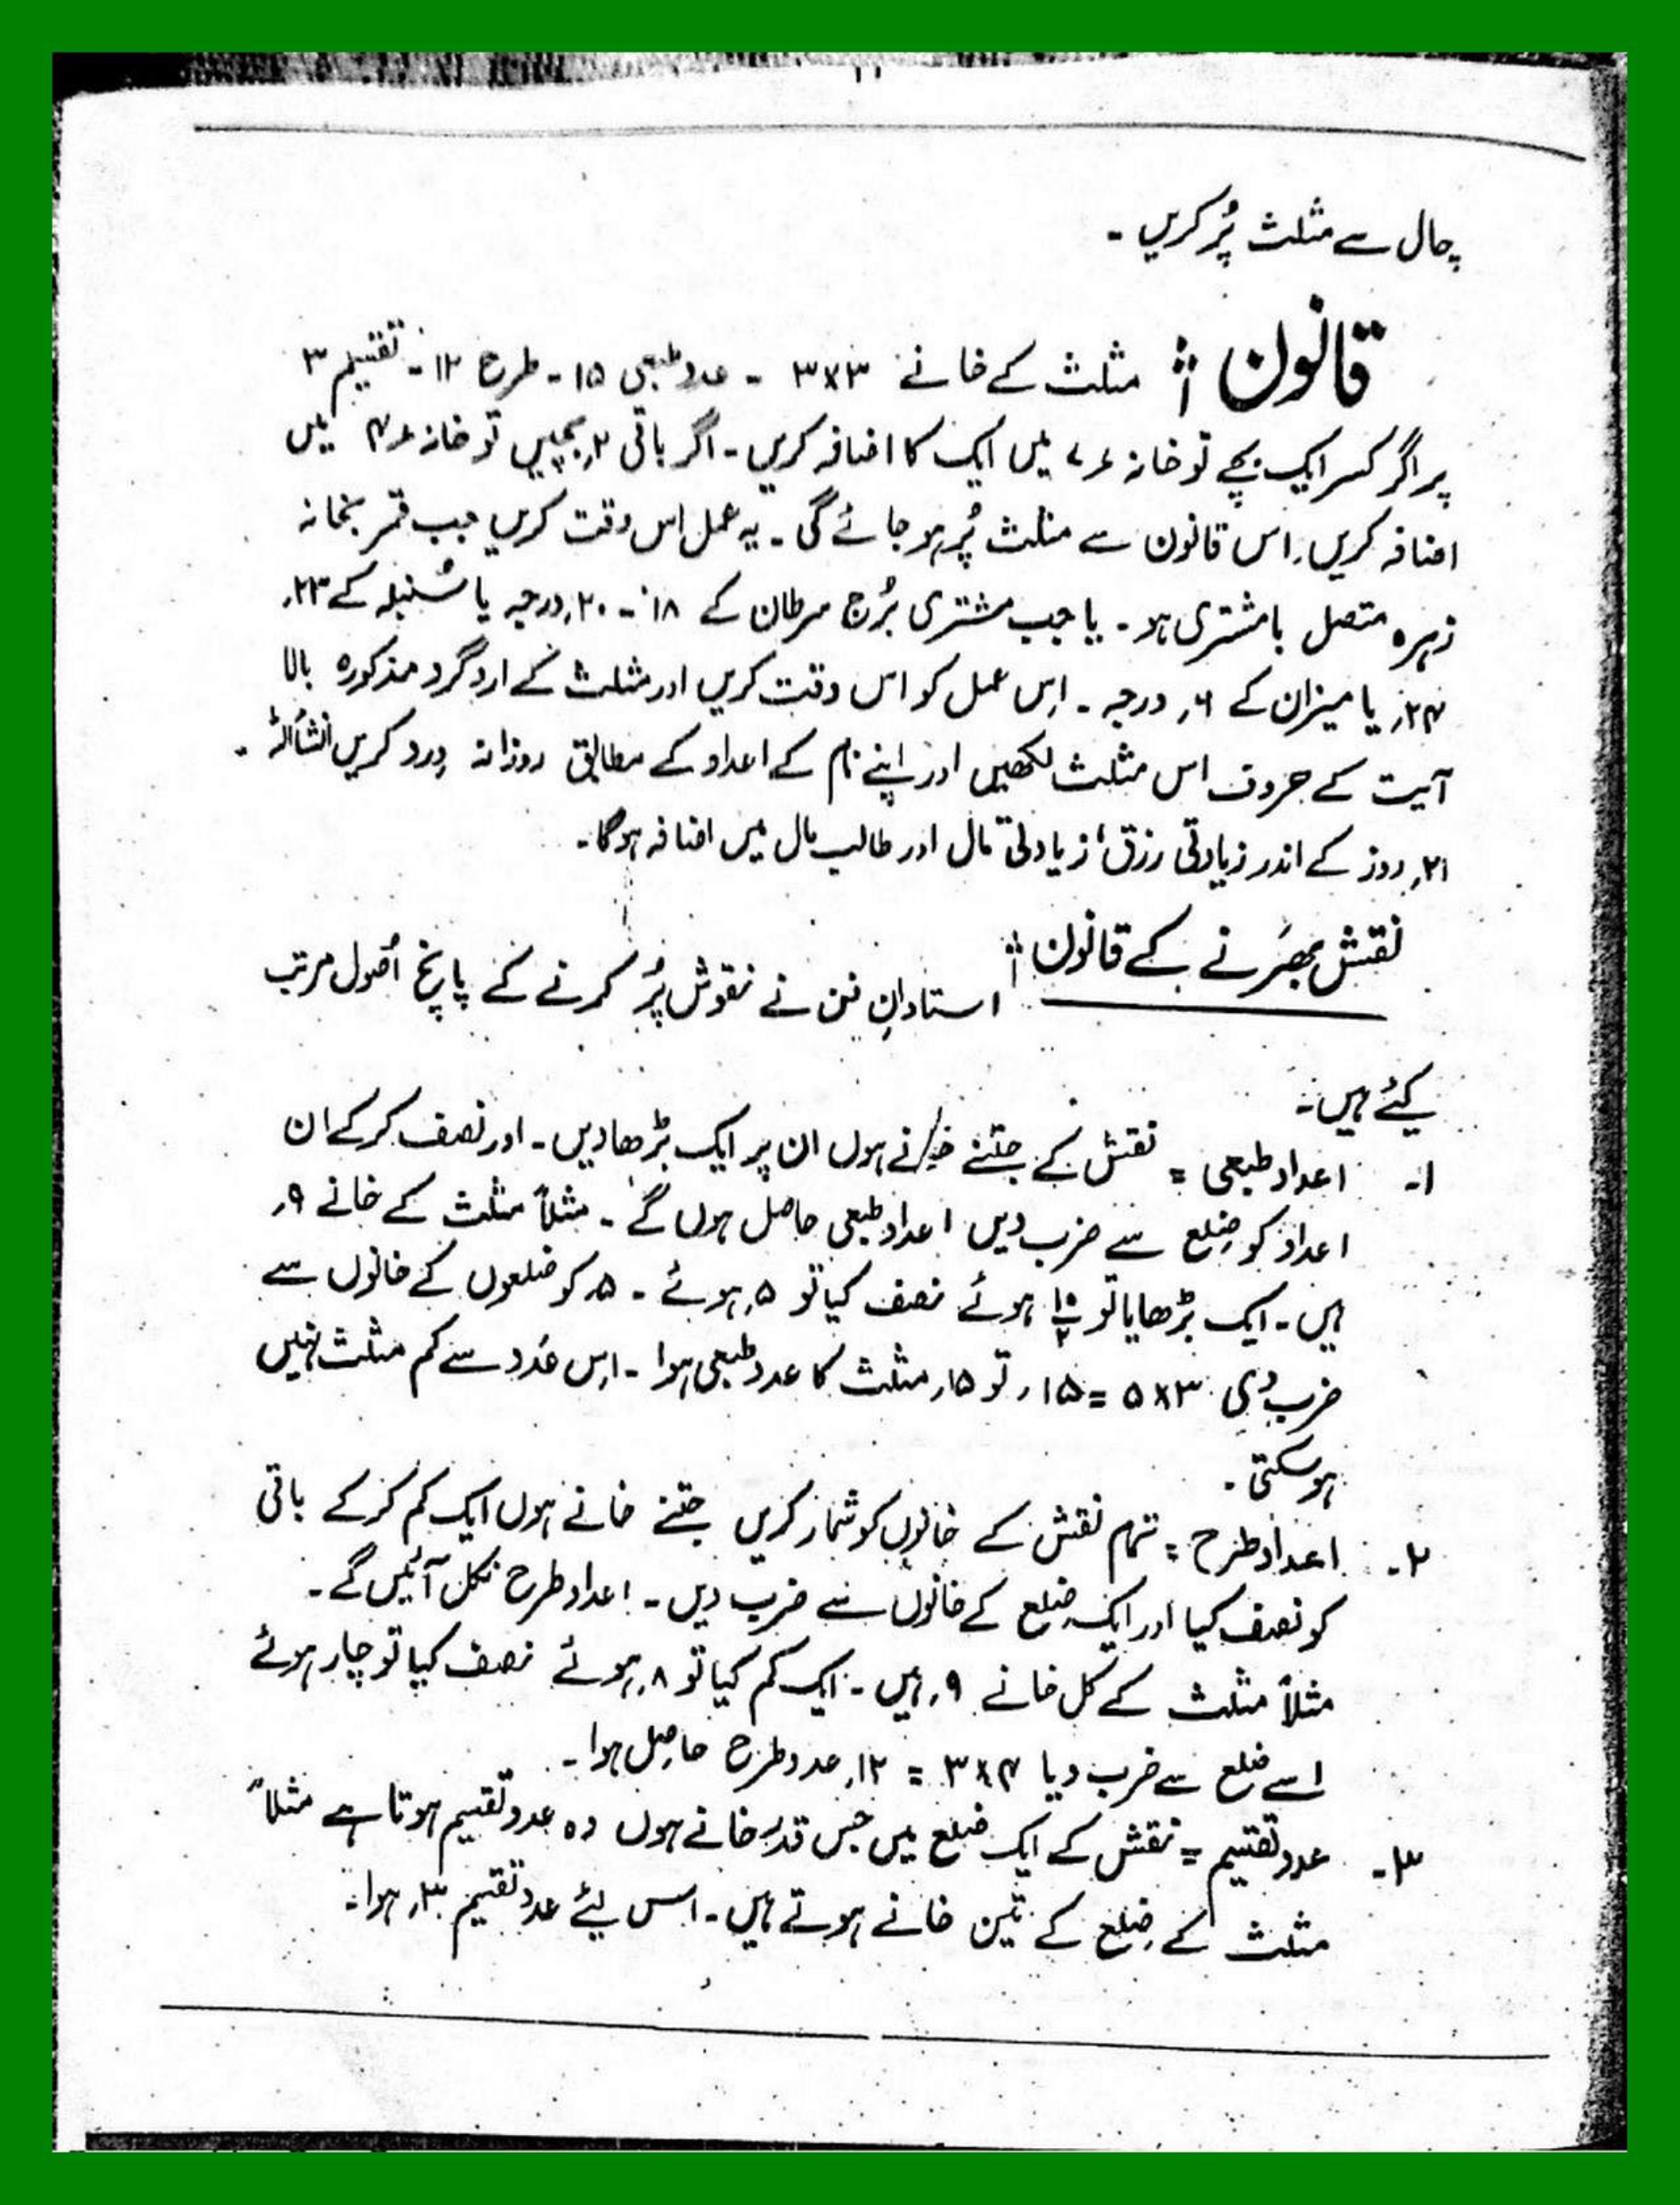 ۱۱
چال سے مثلث پُر کریں ۔
قانون :۔ مثلث کے خانے ۳×۳ ۔ عدد طبعی ۱۵ ۔ طرح ۱۲ ۔ تقسیم ۳
پر اگر کسر ایک بچے تو خانہ ۷ میں ایک کا اضافہ کریں ۔ اگر باقی ۲ بچیں تو خانہ ۴ میں
اضافہ کریں۔ اس قانون سے مثلث پُر ہو جائے گی ۔ یہ عمل اس وقت کریں جب قمر بخانہ
زہرہ متصل بامشتری ہو ۔ یا جب مشتری بُرج سرطان کے ۱۸ ۔ ۲۰ درجہ یا سُنبلہ کے ۲۳،
۲۴، یا میزان کے ۶، درجہ ۔ اِس عمل کو اس وقت کریں اور مثلث کے اردگرد مذکورہ بالا
آیت کے حروف اس مثلث لکھیں اور اپنے نام کے اعداد کے مطابق روزانہ وِرد کریں انشأاللہ ۔
۲۱، روز کے اندر زیادتی رزق، زیادتی مال اور طالب مال میں اضافہ ہوگا ۔
نقش بھَرنے کے قانون :۔ استادانِ فن نے نقوش پُر کرنے کے پانچ اُصول مرتب
کیئے ہیں ۔
۱۔ اعداد طبعی = نقش کے جتنے خانے ہوں ان پر ایک بڑھا دیں ۔ اور نصف کر کے ان
اعداد کو ضِلع سے ضرب دیں اعداد طبعی حاصل ہوں گے ۔ مثلاً مثلث کے خانے ۹،
ہیں ۔ ایک بڑھایا تو ۱۰/۲ ہوئے نصف کیا تو ۵، ہوئے ۔ ۵، کو ضلعوں کے خانوں سے
ضرب دی ۳×۵ = ۱۵، تو ۱۵، مثلث کا عدد طبعی ہوا ۔ اِس عَدد سے کم مثلث نہیں
ہو سکتی ۔
۲۔ اعداد طرح = تمام نقش کے خانوں کو شمار کریں جتنے خانے ہوں ایک کم کر کے باقی
کو نصف کیا اور ایک ضِلع کے خانوں سے ضرب دیں ۔ اعداد طرح نکل آئیں گے ۔
مثلاً مثلث کے کل خانے ۹، ہیں ۔ ایک کم کیا تو ۸، ہوئے نصف کیا تو چار ہوئے
اسے ضِلع سے ضرب دیا ۴×۳ = ۱۲، عدد طرح حاصِل ہوا ۔
۳۔ عدد تقسیم = نقش کے ایک ضلع میں جس قدر خانے ہوں وہ عدد تقسیم ہوتا ہے مثلاً
مثلث کے ضِلع کے تین خانے ہوتے ہیں ۔ اس لیئے عدد تقسیم ۳، ہوا ۔